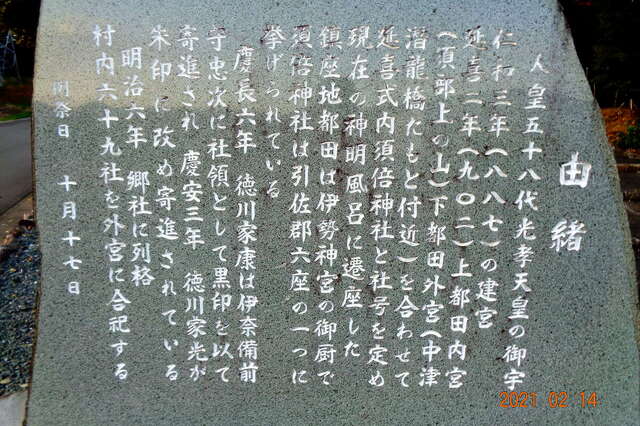 由緒
人皇五十八代光孝天皇の御宇
仁和三年(八八七)の建宮
延喜二年(九〇二)上都田内宮
(須部上の山)下都田外宮(中津
潜龍橋だもと付近)を合わせて
延喜式内須倍神社と社号を定め
現在の神明風呂に遷座した
鎮座地都田は伊勢神宮の御厨で
須倍神社は引佐郡六座の一つに
挙げられている
慶長六年 徳川家康は伊奈備前
守忠次に社領として黒印を以て
寄進され 慶安三年 徳川家光が
朱印に改め寄進されている
明治六年 郷社に列格
村内六十九社を外宮に合祀する
例祭日 十月十七日
2021 02 14